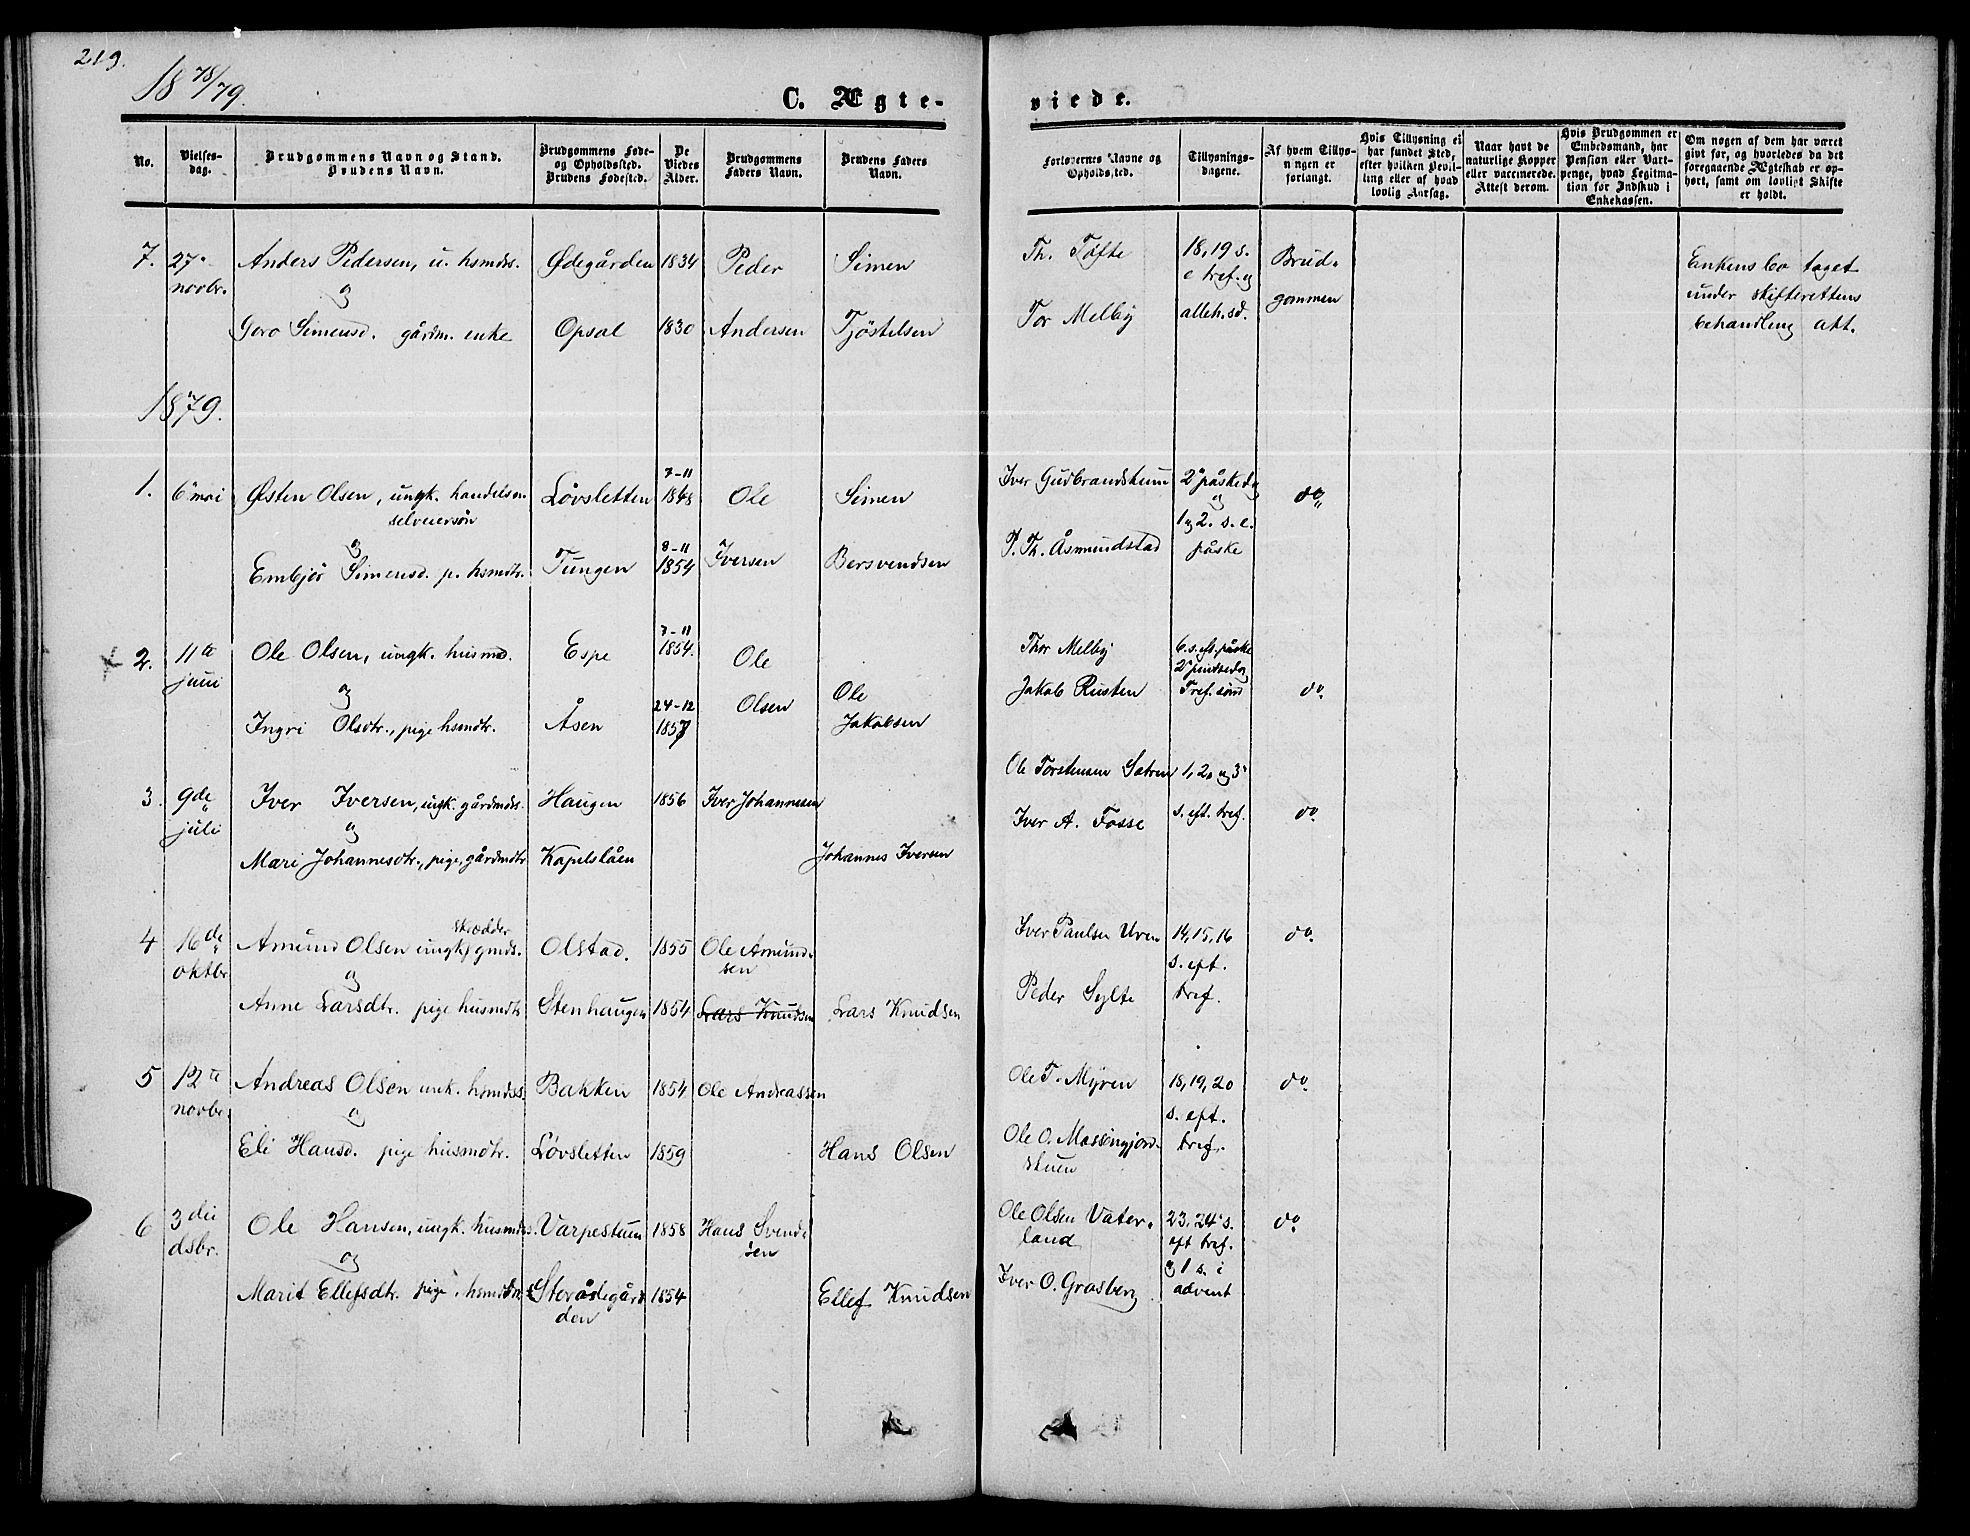 219.
18 78/79.
C. Ægte-
viede.
No.
Vielses-
dag.
Brudgommens Navn og Stand.
Brudens Navn.
Brudgommens Føde-
og Opholdssted.
Brudens Fødested.
De
Viedes
Alder.
Brudgommens
Faders Navn.
Brudens Faders
Navn.
Forlovernes Navne og
Opholdssted.
Tillysnings-
dagene.
Af hvem Tillys-
ningen er
forlangt.
Hvis Tillysning ei
har fundet Sted,
efter hvilken Bevil-
ling eller af hvad
lovlig Aarsag.
Naar havt de
naturlige Kopper
eller vaccinerede.
Attest derom.
Hvis Brudgommen er
Embedsmand, har
Pension eller Vart-
penge, hvad Legitma-
tion for Indskud i
Enkekassen.
Om nogen af dem har været
givt før, og hvorledes da det
foregaaende Ægteskab er op-
hørt, samt om lovligt Skifte
er holdt.
7. 27. Anders Pedersen, u. hsmds. Ødegården 1834 Peder Simen Th. Tofte 18, 19 s. Brud- Enkens bo taget
novbr. og e tref. og gommen under skifterettens
Goro Simensd. gårdm. enke Opsal 1830 Andersen Tjöstelsen Tor Melby alleh. sd. behandling att.
1879.
7-11
1. 6 mai Østen Olsen, ungk. handelsm. Lövsletten 1848 Ole Simen Iver Gudbrandshum 2 påskedg do
selveiersön og
og 8-11 1 og 2. s. e.
Embjör Simensd. p. hsmdtr. Tungen 1854 Iversen Bersvendsen P. Th. Åsmundstad påske
7-11
2. 11te Ole Olsen, ungk. husmd. Espe 1854. Ole Thor Melby 6. s. eft. påske
juni og 2 pintsedag
24-12 Ole Jakob Rusten Tref. sönd do
Ingri Olsdtr., pige hsmdtr. Åsen 1857 Olsen Jakobsen
Ole Torstensen Sætren 1, 2. og 3
3. 9de Iver Iversen, ungk. gårdmds. Haugen 1856 Iver Johannesen
juli og Iver A. Fosse s. eft. tref. do
Mari Johannesdtr., pige, gårdmdtr. Kapelslåen Johannes Iversen
skrædder
4 16de Amund Olsen ungk, gmds. Olstad. 1855 Ole Amund- Iver Paulsen Uren 14, 15, 16 do
oktbr og sen s. eft.
Anne Larsdtr. pige husmdtr Stenhaugen 1854 Lars Knudsen Lars Knudsen Peder Sylte tref.
5 12te Andreas Olsen unk. hsmds. Bakken 1854 Ole Andreassen Ole T. Myren 18, 19, 20 do
novbr. og s. eft.
Eli Hansd. pige husmdtr. Lövsletten 1859 Hans Olsen Ole O. Massingjord- tref.
stuen
6 3die Ole Hansen, ungk. husmds. Varpestuen 1858 Hans Svend- Ole Olsen Vater- 23, 24 s. do
dsbr. og sen land eft tref.
Marit Ellefsdtr. pige, hsmdtr. Storödegår- 1854 Ellef Knudsen Iver O. Grosberg og 1 s. i
den advent